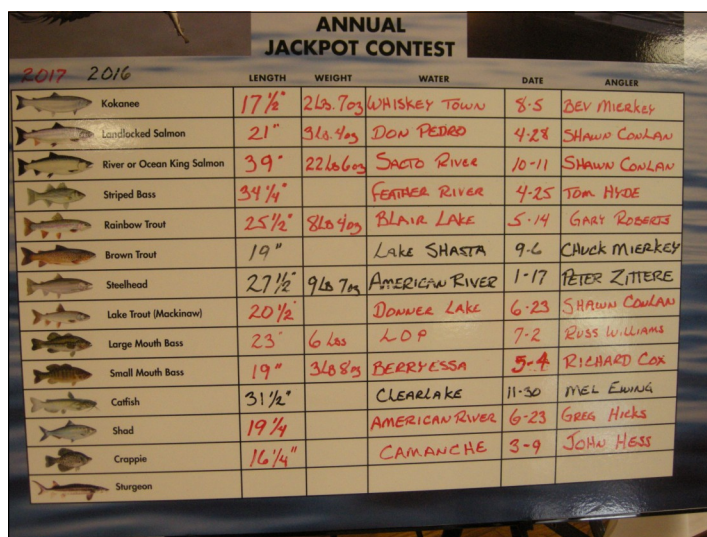 ANNUAL
JACKPOT CONTEST
2017 2016
LENGTH WEIGHT WATER DATE ANGLER
Kokanee 17 1/2" 2Lbs. 7oz WHISKEY TOWN 8-5 BEV MIERKEY
Landlocked Salmon 21" 3Lb. 4oz DON PEDRO 4-28 SHAWN CONLAN
River or Ocean King Salmon 39" 22Lb 6oz SACTO RIVER 10-11 SHAWN CONLAN
Striped Bass 34 1/4" FEATHER RIVER 4-25 TOM HYDE
Rainbow Trout 25 1/2" 8Lb 4oz BLAIR LAKE 5-14 GARY ROBERTS
Brown Trout 19" LAKE SHASTA 9-6 CHUCK MIERKEY
Steelhead 27 1/2" 9Lb 7oz AMERICAN RIVER 1-17 PETER ZITTERE
Lake Trout (Mackinaw) 20 1/2" DONNER LAKE 6-23 SHAWN CONLAN
Large Mouth Bass 23" 6 Lbs LOP 7-2 RUSS WILLIAMS
Small Mouth Bass 19" 3Lb 8oz BERRYESSA 5-4 RICHARD COX
Catfish 31 1/2" CLEARLAKE 11-30 MEL EWING
Shad 19 1/4 AMERICAN RIVER 6-23 GREG HICKS
Crappie 16 1/4" CAMANCHE 3-9 JOHN HESS
Sturgeon